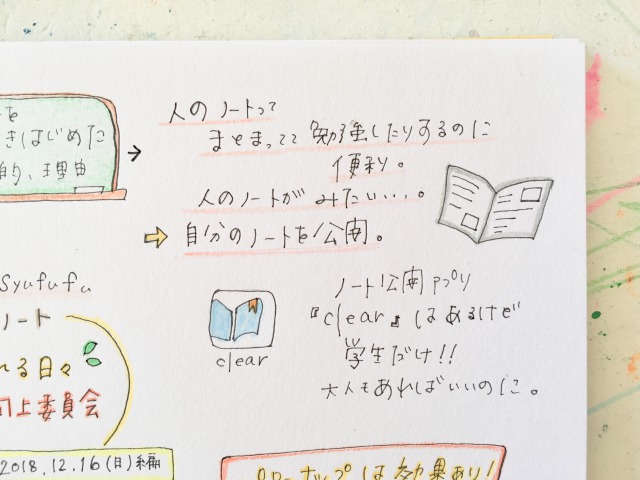 を
きはじめた
的、理由
人のノートって
まとまってて勉強したりするのに
便利。
人のノートがみたいい、、、。
自分のノートを公開。
syufufu
ノート
れる日々
向上委員会
2018.12.16(日)編
clear
ノート公開アプリ
『clear』はあるけど
学生だけ!!
大人もあればいいのに。
は効果あり!